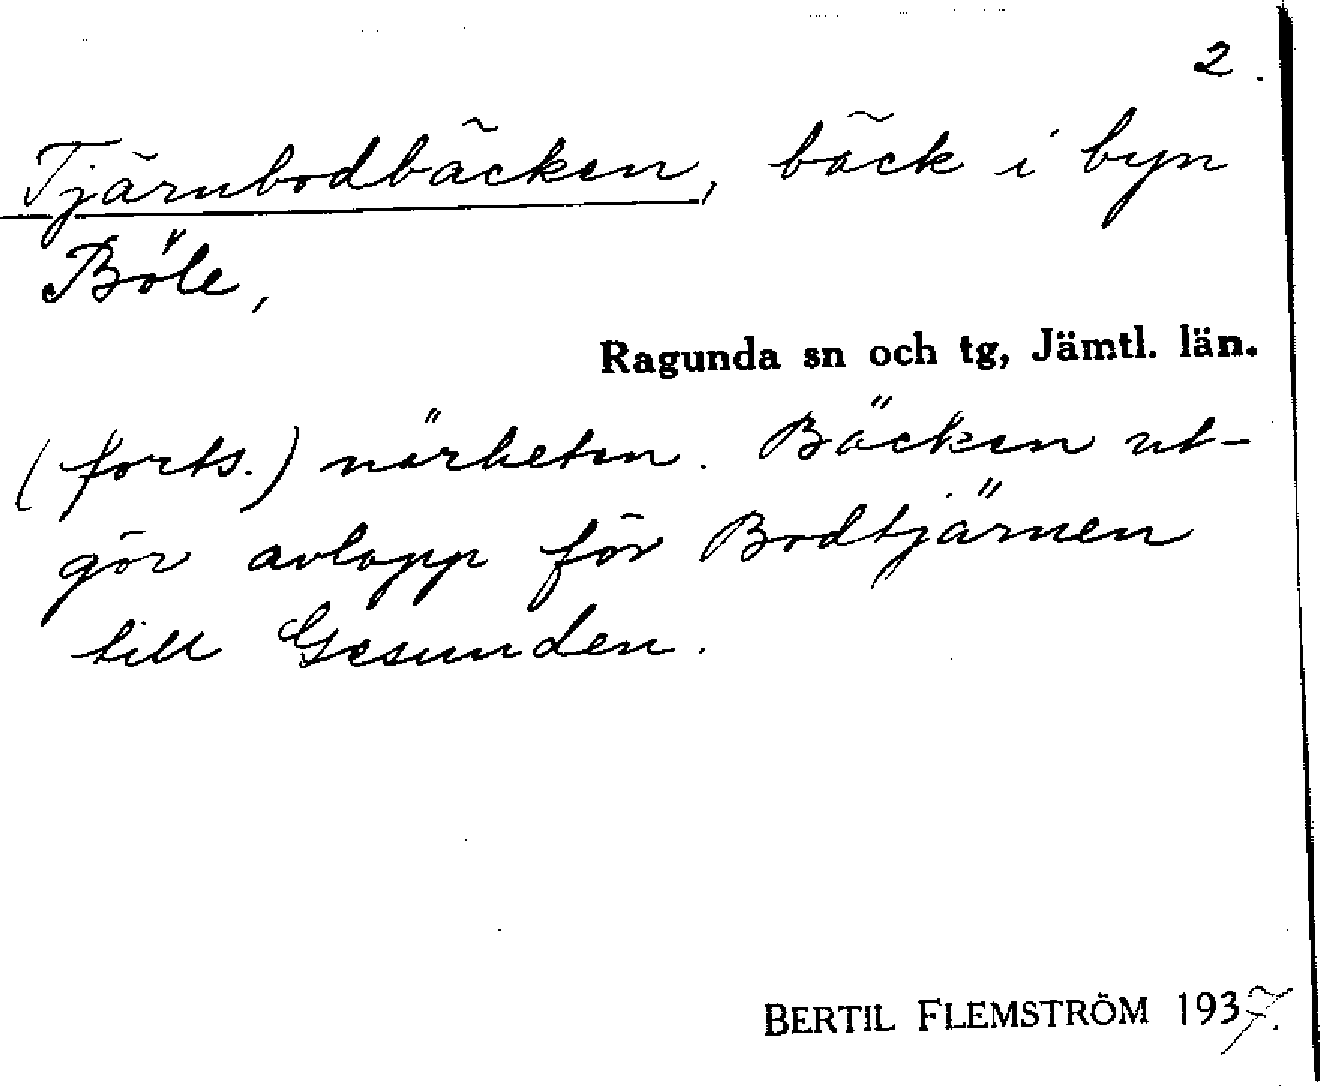 2.
Tjärnbodbäcken, bäck i byn
Böle,
Ragunda sn och tg, Jämtl. län.
(forts.) närheten. Bäcken ut-
gör avlopp för Bodtjärnen
till Gesunden.
BERTIL FLEMSTRÖM 1937.